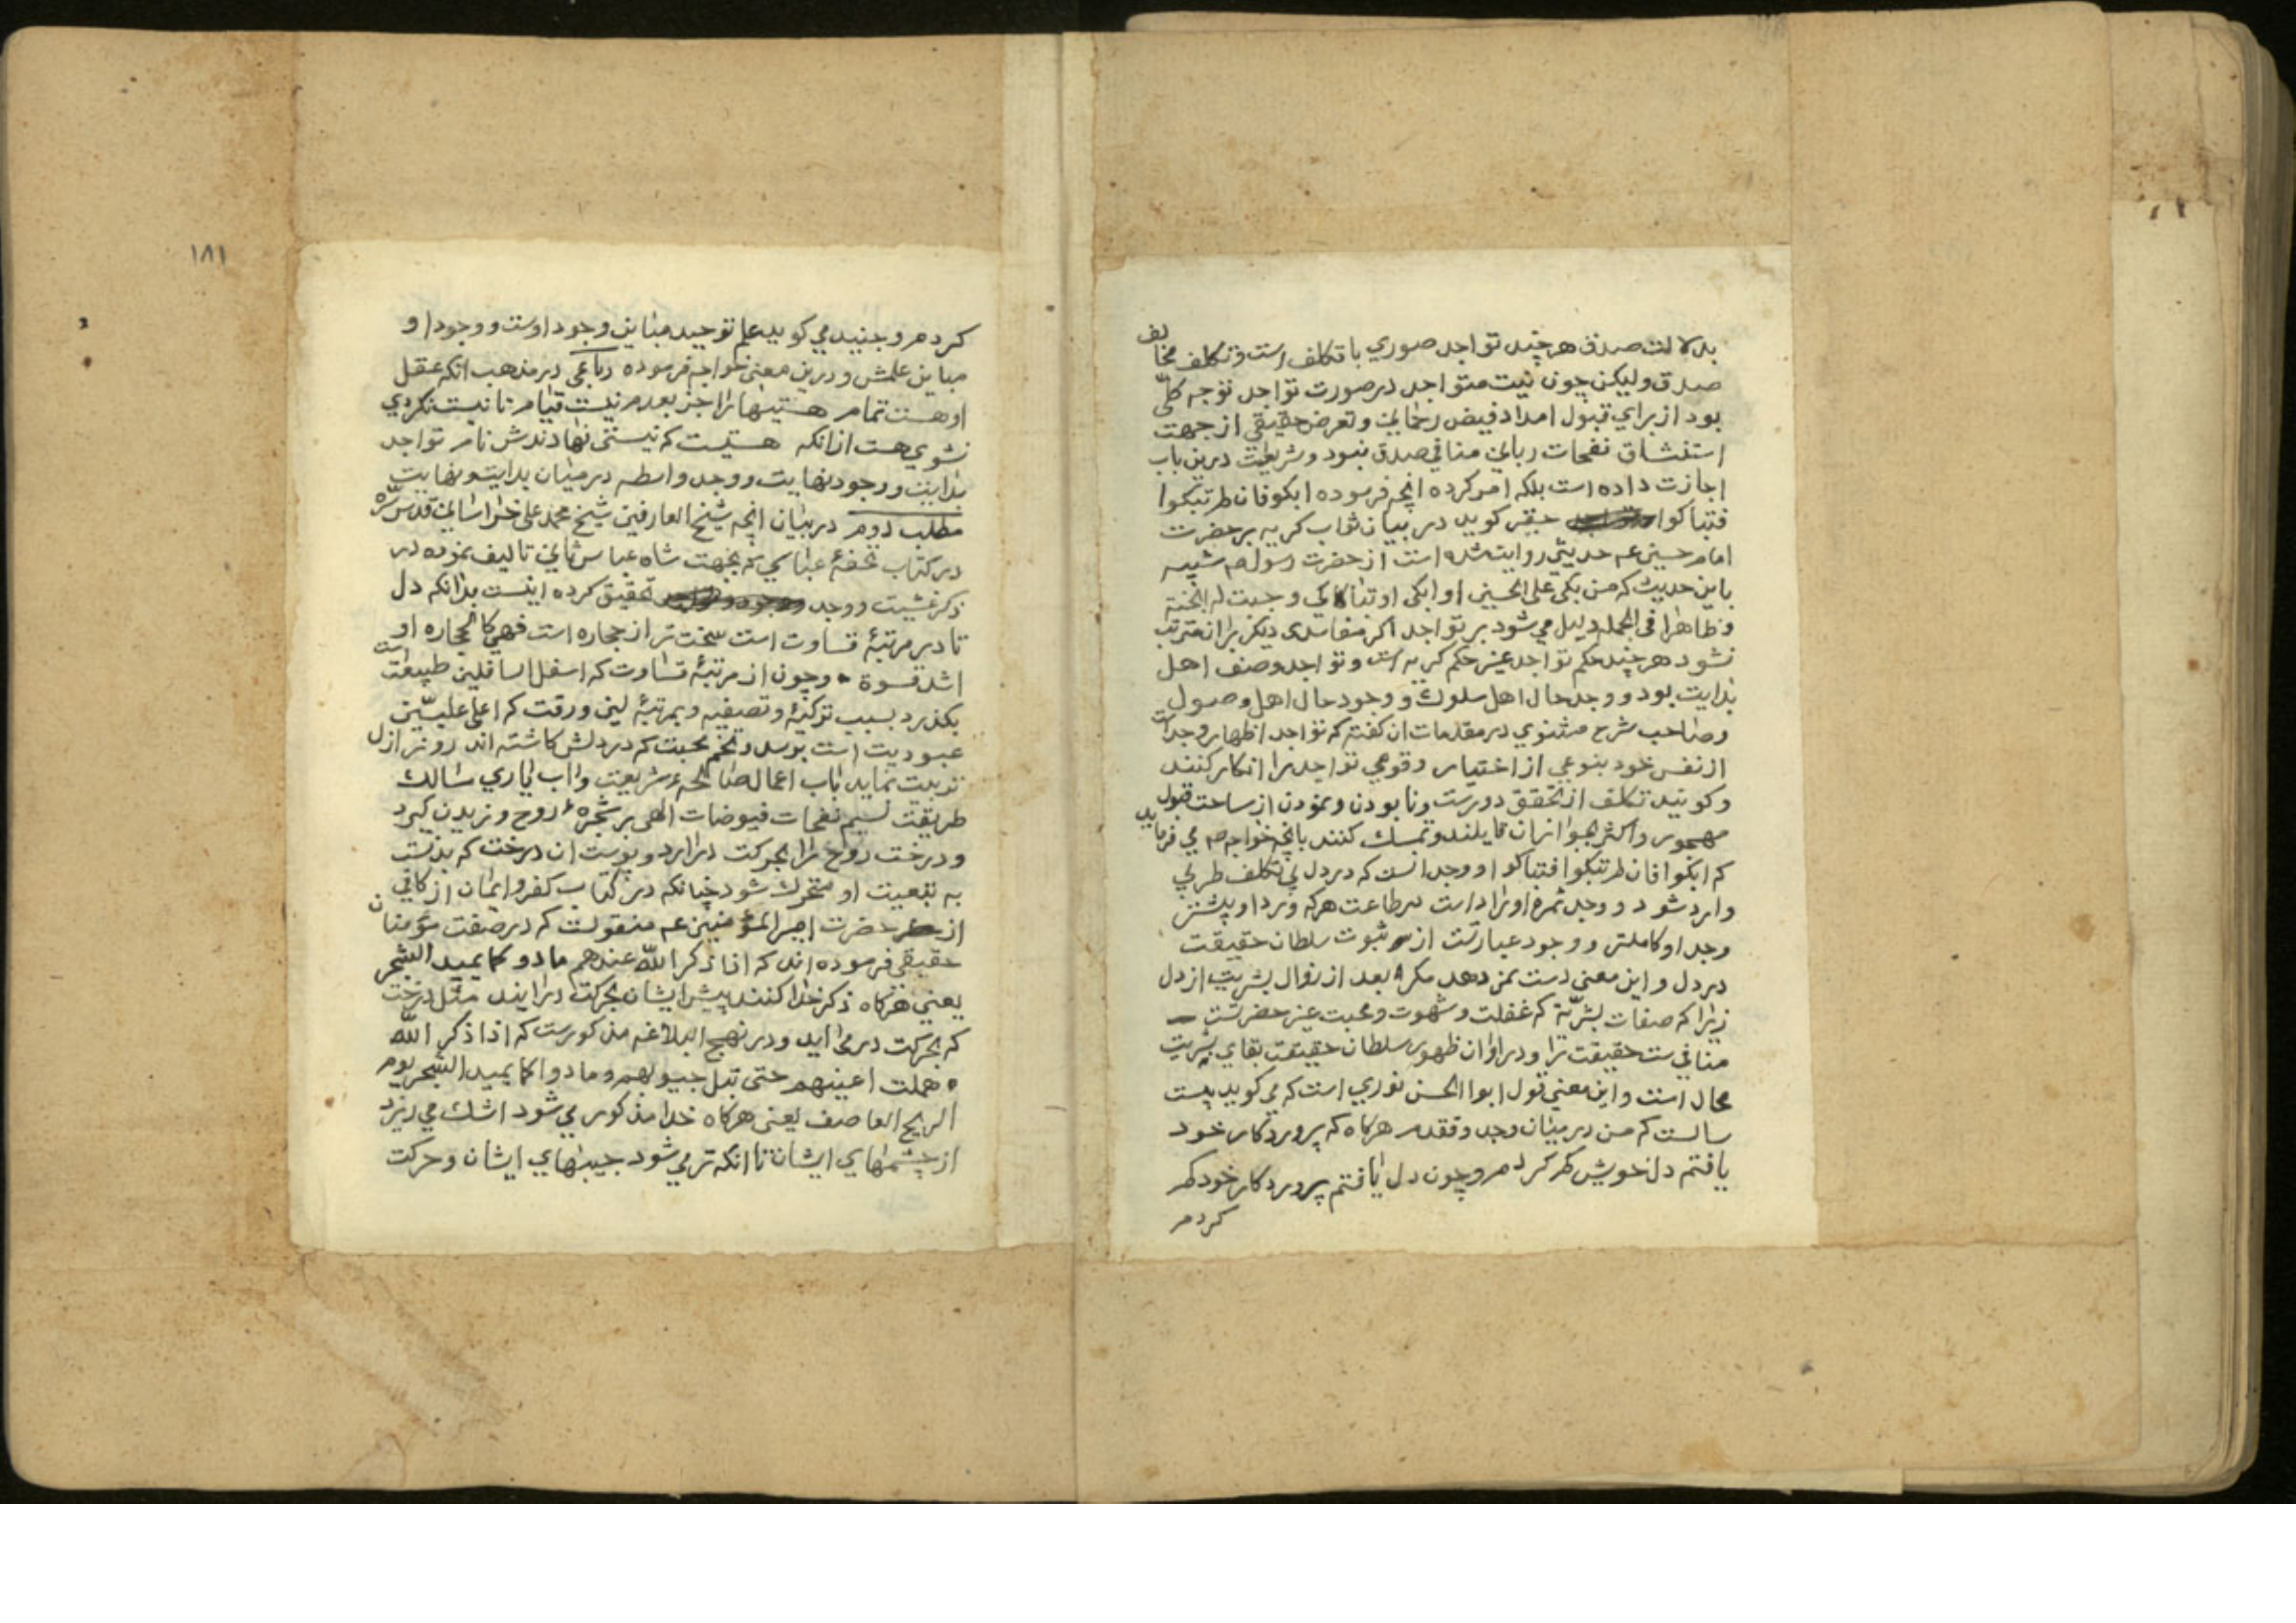 بدلالت صدق هر چند تواجد صوري با تكلف است و تكلف مخالف
صدق وليكن چون نيت متواجد در صورت تواجد توجه كلّي
بود از براي قبول امداد فيض رحماني و تعرض حقيقي از جهت
استنشاق نفحات رباني منافي صدق نبود و شريعت درين باب
اجازت داده است بلكه امر كرده انچه فرموده ابكوا فان لم تبكوا
فتباكوا حقير كويد در بيان ثواب كريه بر حضرت
امام حسين عم حديثي روايت شده است از حضرت رسول صم شبيه
باين حديث كه من بكى على الحسين او ابكى او تباكي وجبت له الجنة
و ظاهرا فى الجمله دليل مي شود بر تواجد اكر مفاسدى ديكر بران مترتب
نشود هر چند حكم تواجد غير حكم كريه است و تواجد وصف اهل
بدايت بود و وجد حال اهل سلوك و وجود حال اهل وصول
و صاحب شرح مثنوي در مقدمات ان كفته كه تواجد اظهار وجد است
از نفس خود بنوعي از اختيار و قومي تواجد را انكار كنند
و كويند تكلف از تحقق دورست و نابودن و نمودن از ساحت قبول
مهجور و اكثر بجواز ان قايلند و تمسك كنند بانچه خواجه صم مي فرمايد
كه ابكوا فان لم تبكوا فتباكوا و وجد انست كه در دل بي تكلف طربي
وارد شود و وجد ثمره اوراد است بر طاعت هر كه ورد او بيشتر
وجد او كاملتر و وجود عبارتست از ثبوت سلطان حقيقت
در دل و اين معني دست نمي دهد مكر بعد از زوال بشريت از دل
زيرا كه صفات بشريّة كه غفلت و شهوت و محبت غير حضرتست
منافي ست حقيقت را و در اوان ظهور سلطان حقيقت بقاي بشريت
محال است و اين معني قول ابوا الحسن نوري است كه مي كويد بيست
سالست كه من در ميان وجد و فقدم هركاه كه پروردكار خود
يافتم دل خويش كم كردم و چون دل يافتم پروردكار خود كم
كردم
١٨١
كردم و جنيد مي كويد علم توحيد مباين وجود اوست و وجود او
مباين علمش و درين معني خواجه فرموده رباعي در مذهب انكه عقل
او هست تمام هستيها را جز بعدم نيست قيام تا نيست نكردي
نشوي هست ازانكه هستيست كه نيستى نهادندش نام تواجد
بدايت و وجود نهايت و وجد واسطه در ميان بدايت و نهايت
مطلب دوم در بيان انچه شيخ العارفين شيخ محمد علي خراساني قدس سره
در كتاب تحفهٔ عباسي كه بجهت شاه عباس ثاني تاليف نموده در
ذكر غشيت و وجد تحقيق كرده اينست بدانكه دل
تا در مرتبهٔ قساوت است سخت تر از حجاره است فهي كالحجاره او
اشد قسوة و چون از مرتبهٔ قساوت كه اسفل السافلين طبيعت است
بكذرد بسبب تزكيه و تصفيه و بمرتبهٔ لين و رقت كه اعلى عليّين
عبوديت است برسد و تخم محبت كه در دلش كاشته اند روز ازل
تربيت نمايد باب اعمال صالحهٔ شريعت و اب ياري سالك
طريقت نسيم نفحات فيوضات الهى بر شجرهٔ روح وزيدن كيرد
و درخت روح را بحركت دراورد و پوست ان درخت كه بدنست
به تبعيت او متحرك شود چنانكه در كتاب كفر و ايمان از كافي
از حضرت امير المؤمنين عم منقولست كه در صفت مؤمنان
حقيقي فرموده اند كه اذا ذكر اللّه عندهم مادوا كما يميد الشجر
يعني هركاه ذكر خدا كنند پيش ايشان بحركت درايند مثل درخت
كه بحركت درمي ايد و در نهج البلاغه مذكورست كه اذا ذكر اللّه
هملت اعينهم حتى تبل جيوبهم و مادوا كما يميد الشجر يوم
الريح العاصف يعني هركاه خدا مذكور مي شود اشك مي ريزد
از چشمهاي ايشان تا انكه تر مي شود جيبهاي ايشان و حركت